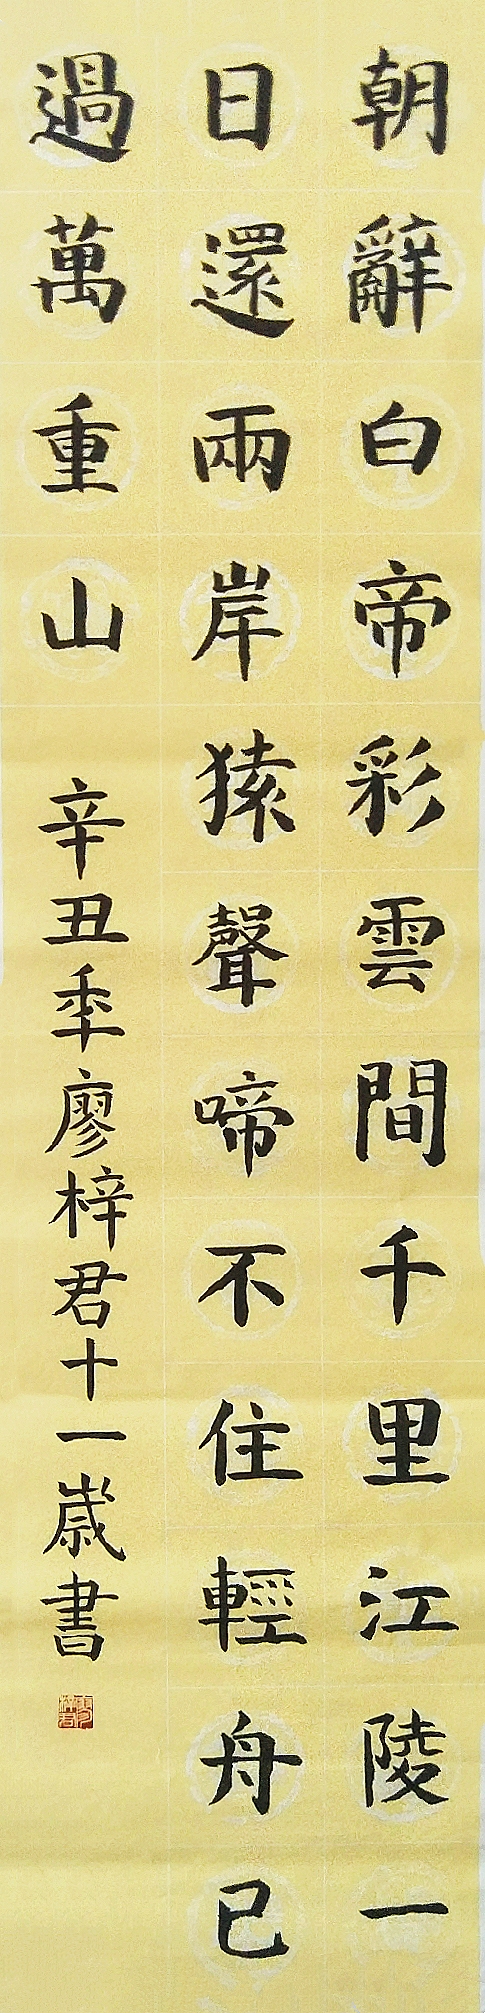 朝辭白帝彩雲間千里江陵一
日還兩岸猿聲啼不住輕舟已
過萬重山
辛丑年廖梓君十一歲書
廖梓君